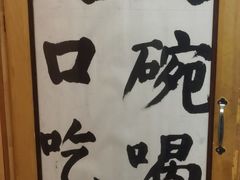 碗喝
口吃